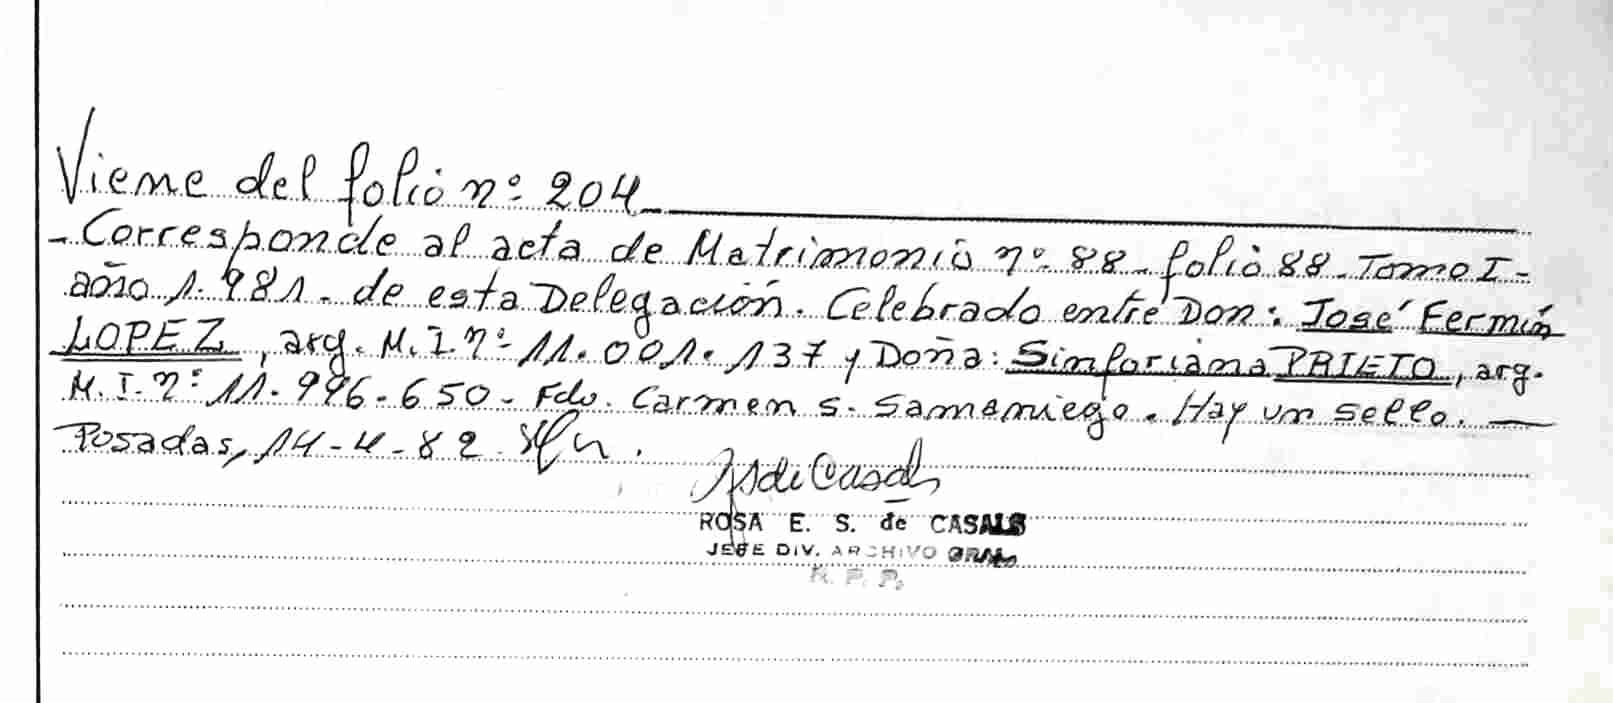 Viene del folio nº 204
- Corresponde al acta de Matrimonio nº 88 - folio 88 - Tomo I -
año 1.981 - de esta Delegación. Celebrado entre Don: José Fermín
LOPEZ, arg. M.I. nº 11.001.137 y Doña: Sinforiana PRIETO, arg.
M.I. nº 11.996.650 - Fdo. Carmen S. Samaniego. Hay un sello. —
Posadas, 14-4-82.
ROSA E. S. de CASALS
JEFE DIV. ARCHIVO GRAL
R. P. P.